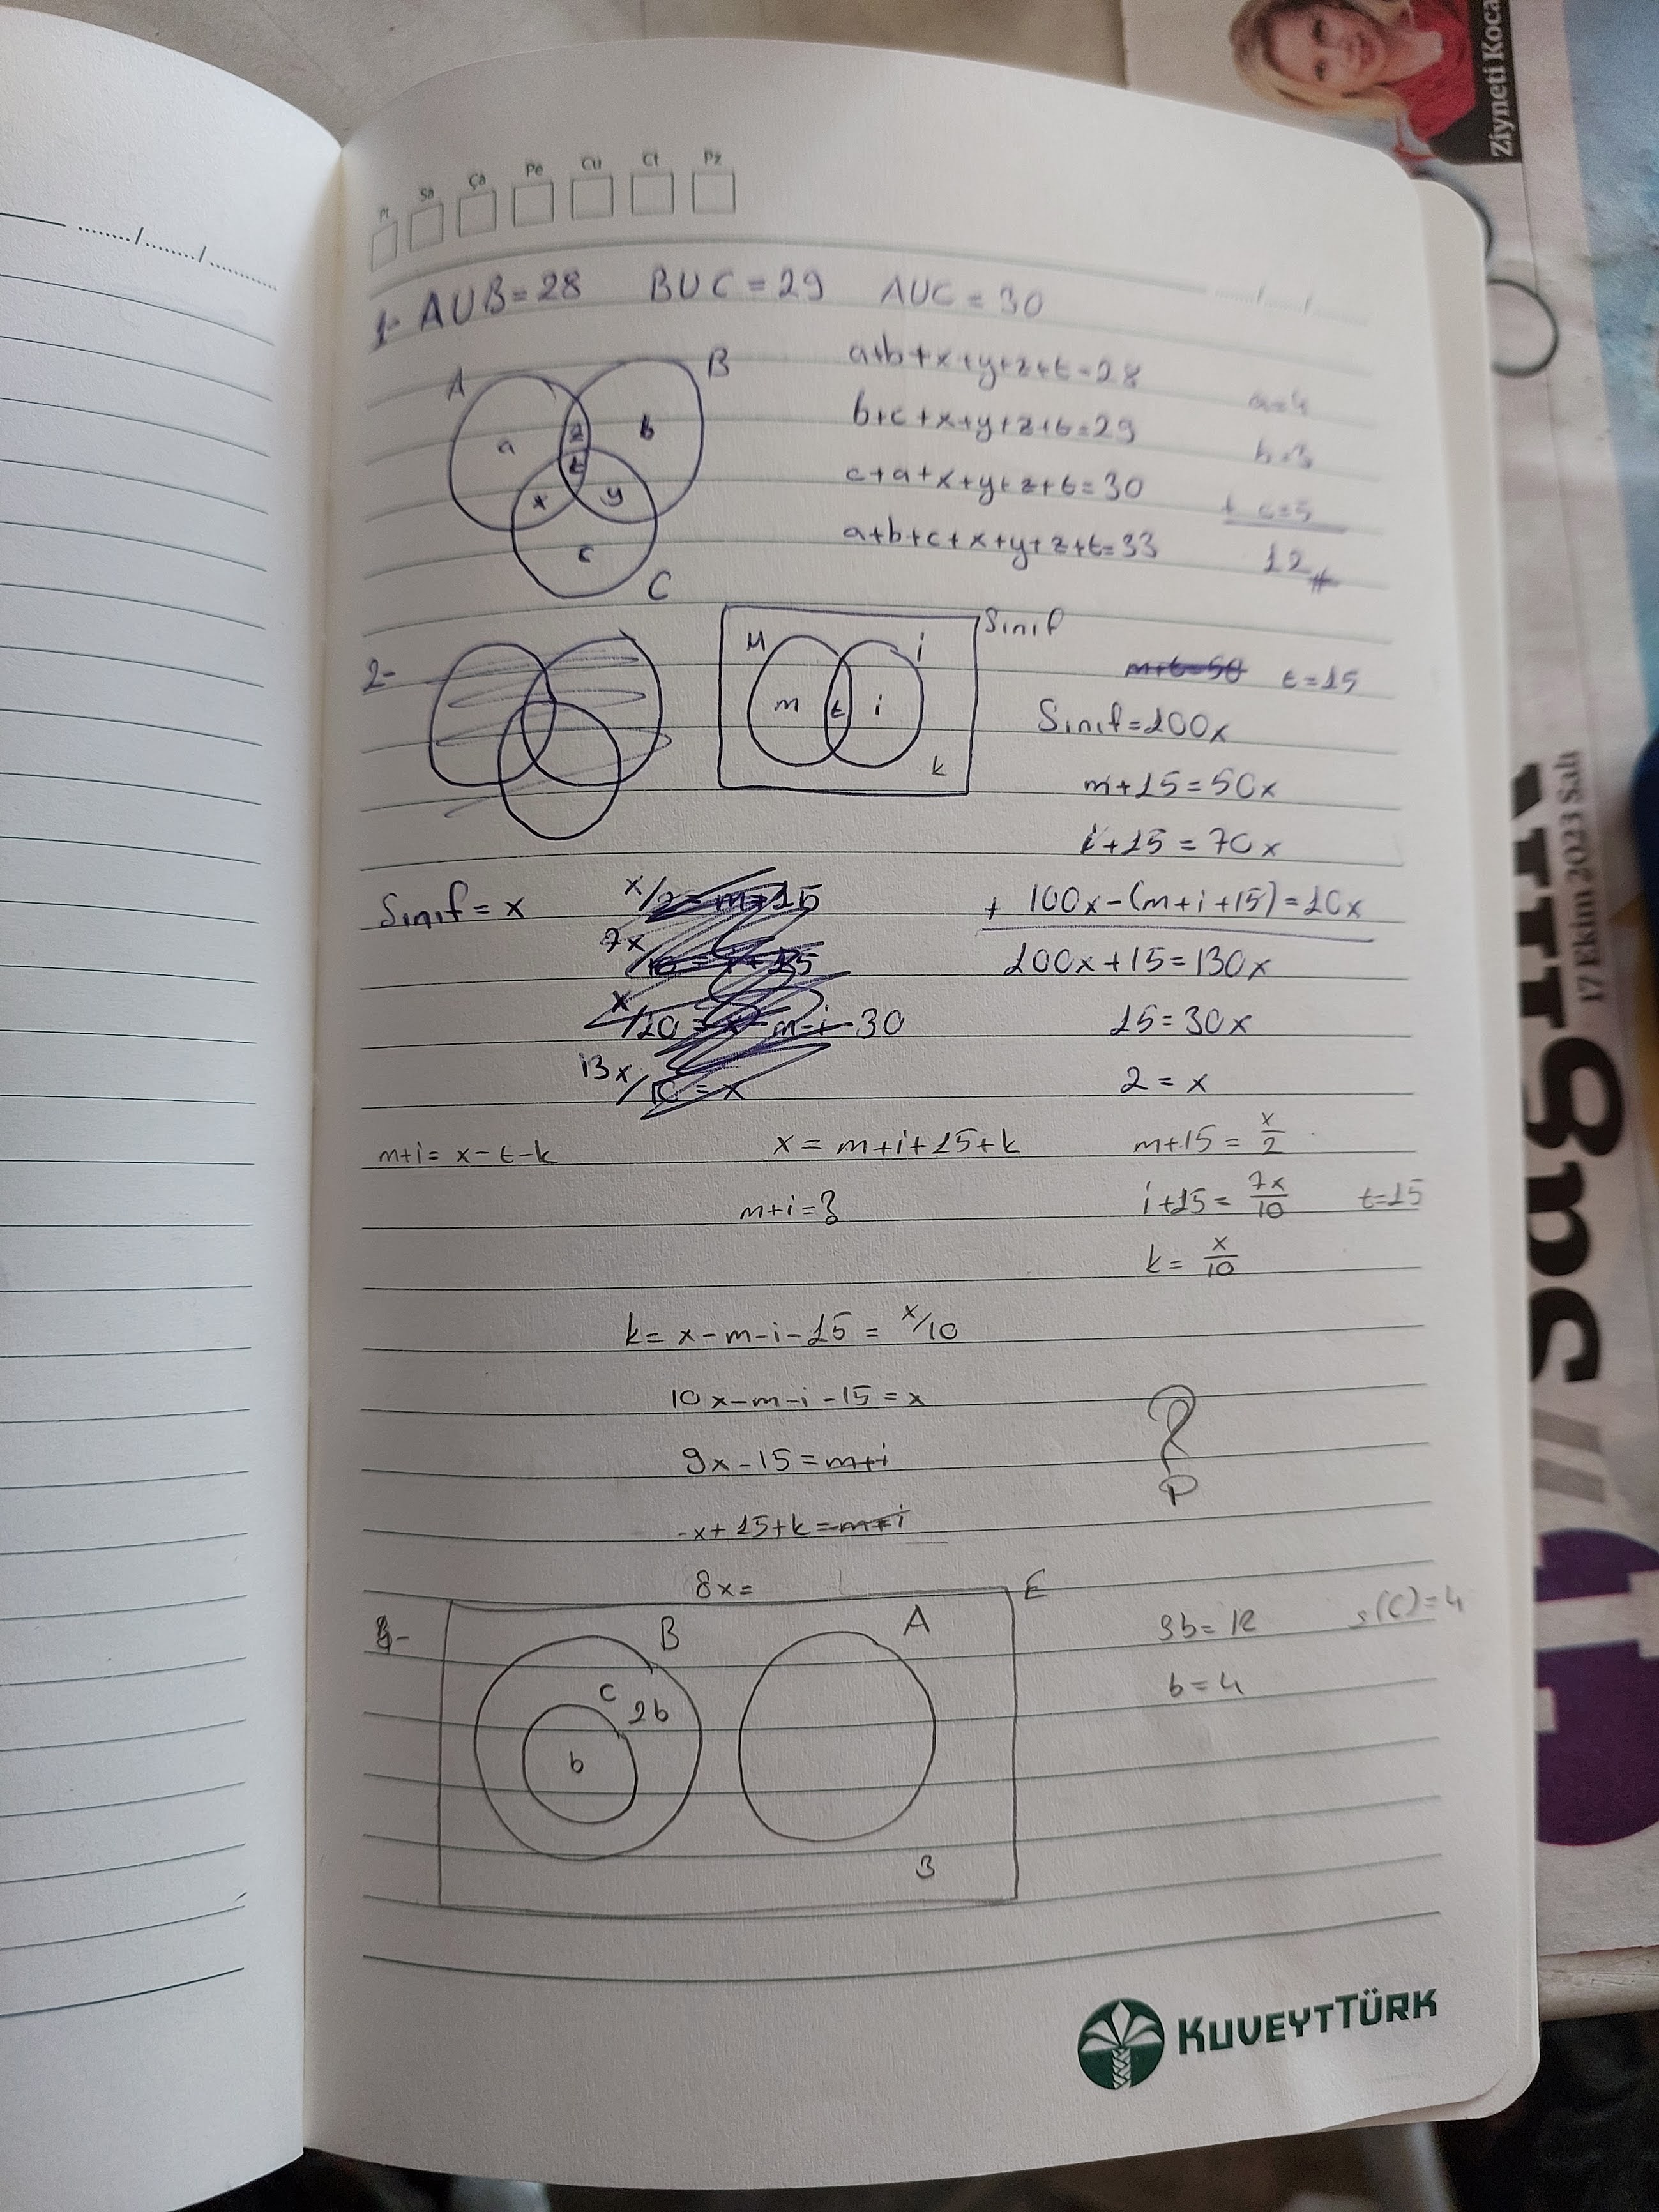 Pt Sa Ça Pe Cu Ct Pz
1- AUB=28 BUC=29 AUC=30
A B a z b t x y c C
a+b+x+y+z+t=28
b+c+x+y+z+t=29
c+a+x+y+z+t=30
a+b+c+x+y+z+t=33
a=4
b=3
+ c=5
12
2-
M i Sınıf
m t i
k
m+t=50 t=15
Sınıf=100x
m+15=50x
i+15=70x
+ 100x-(m+i+15)=10x
100x+15=130x
15=30x
2=x
Sınıf=x
x/2=m+15
7x/10=i+15
x/10=x-m-i-30
13x/10=x
m+i=x-t-k
x=m+i+15+k
m+i=?
m+15=x/2
i+15=7x/10 t=15
k=x/10
k=x-m-i-15=x/10
10x-m-i-15=x
9x-15=m+i
-x+15+k=m+i
8x=
?
E
B A
C 2b
b
3
3b=12 s(C)=4
b=4
KUVEYTTÜRK
Ziyneti Koca
17 Ekim 2023 Salı